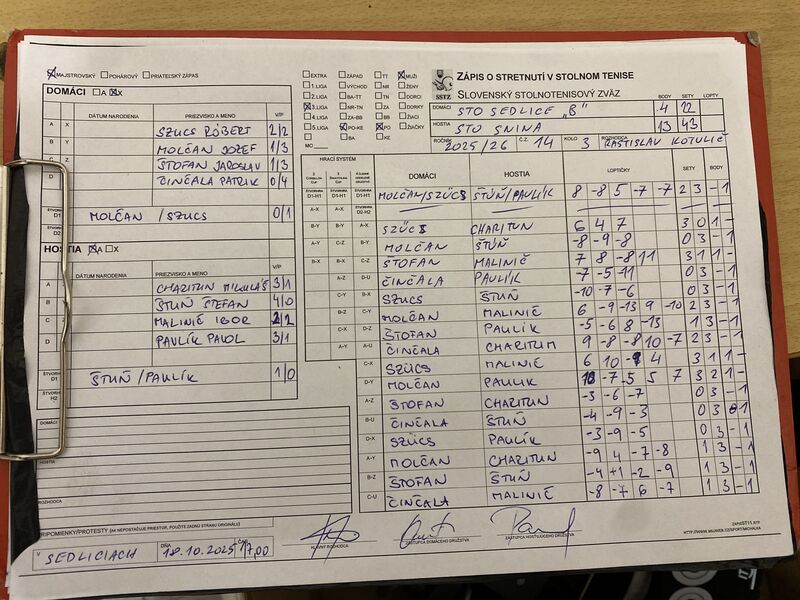 MAJSTROVSKÝ POHÁROVÝ PRIATEĽSKÝ ZÁPAS
DOMÁCI A X
DÁTUM NARODENIA PRIEZVISKO A MENO V/P
A X SZUCS RÓBERT 2/2
B Y MOLČAN JOZEF 1/3
C Z ŠTOFAN JAROSLAV 1/3
ČINČALA PATRIK 0/4
ŠTVORHRA D1 MOLČAN / SZUCS 0/1
D2
HOSTIA A X
DÁTUM NARODENIA PRIEZVISKO A MENO V/P
A CHARITUN MIKULÁŠ 3/1
B ŠTUŇ ŠTEFAN 4/0
C MALINIČ IGOR 2/2
D PAVLÍK PAVOL 3/1
D1 ŠTUŇ / PAULÍK 1/0
H2
DOMÁCI
HOSTIA
ROZHODCA
PRIPOMIENKY/PROTESTY (AK NEPOSTAČUJE PRIESTOR, POUŽITE ZADNÚ STRANU ORIGINÁLU)
V SEDLICIACH DŇA 18.10.2025 ČAS 17,00
HLAVNÝ ROZHODCA ZÁSTUPCA DOMÁCEHO DRUŽSTVA ZÁSTUPCA HOSŤUJÚCEHO DRUŽSTVA
EXTRA ZÁPAD TT MUŽI
1.LIGA VÝCHOD NR ŽENY
2.LIGA BA-TT TN DORCI
3.LIGA NR-TN ZA DORKY
4.LIGA ZA-BB BB ŽIACI
5.LIGA PO-KE PO ŽIAČKY
MC BA KE
SSTZ
ZÁPIS O STRETNUTÍ V STOLNOM TENISE
SLOVENSKÝ STOLNOTENISOVÝ ZVÄZ BODY SETY LOPTY
DOMÁCI STO SEDLICE "B" 4 22
HOSTIA STO SNINA 13 43
ROČNÍK 2025/26 Č.Z. 14 KOLO 3 ROZHODCA RASTISLAV KOTULIČ
HRACÍ SYSTÉM DOMÁCI HOSTIA LOPTIČKY SETY BODY
D1-H1 D1-H1 D1-H1 MOLČAN/SZÜCS ŠTÚŇ/PAULÍK 8 -8 5 -7 -7 2 3 -1
A-X A-X D2-H2
B-Y B-Y A-X SZÜCS CHARITUN 6 4 7 3 0 1 -
A-Y C-Z B-Y MOLČAN ŠTÚŇ -8 -9 -8 0 3 -1
B-X B-X C-Z ŠTOFAN MALINIČ 7 8 -8 11 3 1 1 -
A-Z D-U ČINČALA PAULÍK -7 -5 -11 0 3 -1
C-Y B-X SZUCS ŠTUŇ -10 -7 -6 0 3 -1
B-Z C-Y MOLČAN MALINIČ 6 -9 -13 9 -10 2 3 -1
C-X D-Z ŠTOFAN PAULÍK -5 -6 8 -13 1 3 -1
A-Y A-U ČINČALA CHARITUM 9 -8 -8 10 -7 2 3 -1
C-X SZÜCS MALINIČ 6 10 4 3 1 1 -
D-Y MOLČAN PAULIK -7 5 5 7 3 2 1 -
A-Z ŠTOFAN CHARITUN -3 -6 -7 0 3 -1
B-U ČINČALA ŠTUŇ -4 -9 -3 0 3 1
D-X SZÜCS PAULÍK -3 -9 -5 0 3 -1
A-Y MOLČAN CHARITUN -9 4 -7 -8 1 3 -1
B-Z ŠTOFAN ŠTUŇ -4 -2 -9 1 3 -1
C-U ČINČALA MALINIČ -8 -7 6 -7 1 3 -1